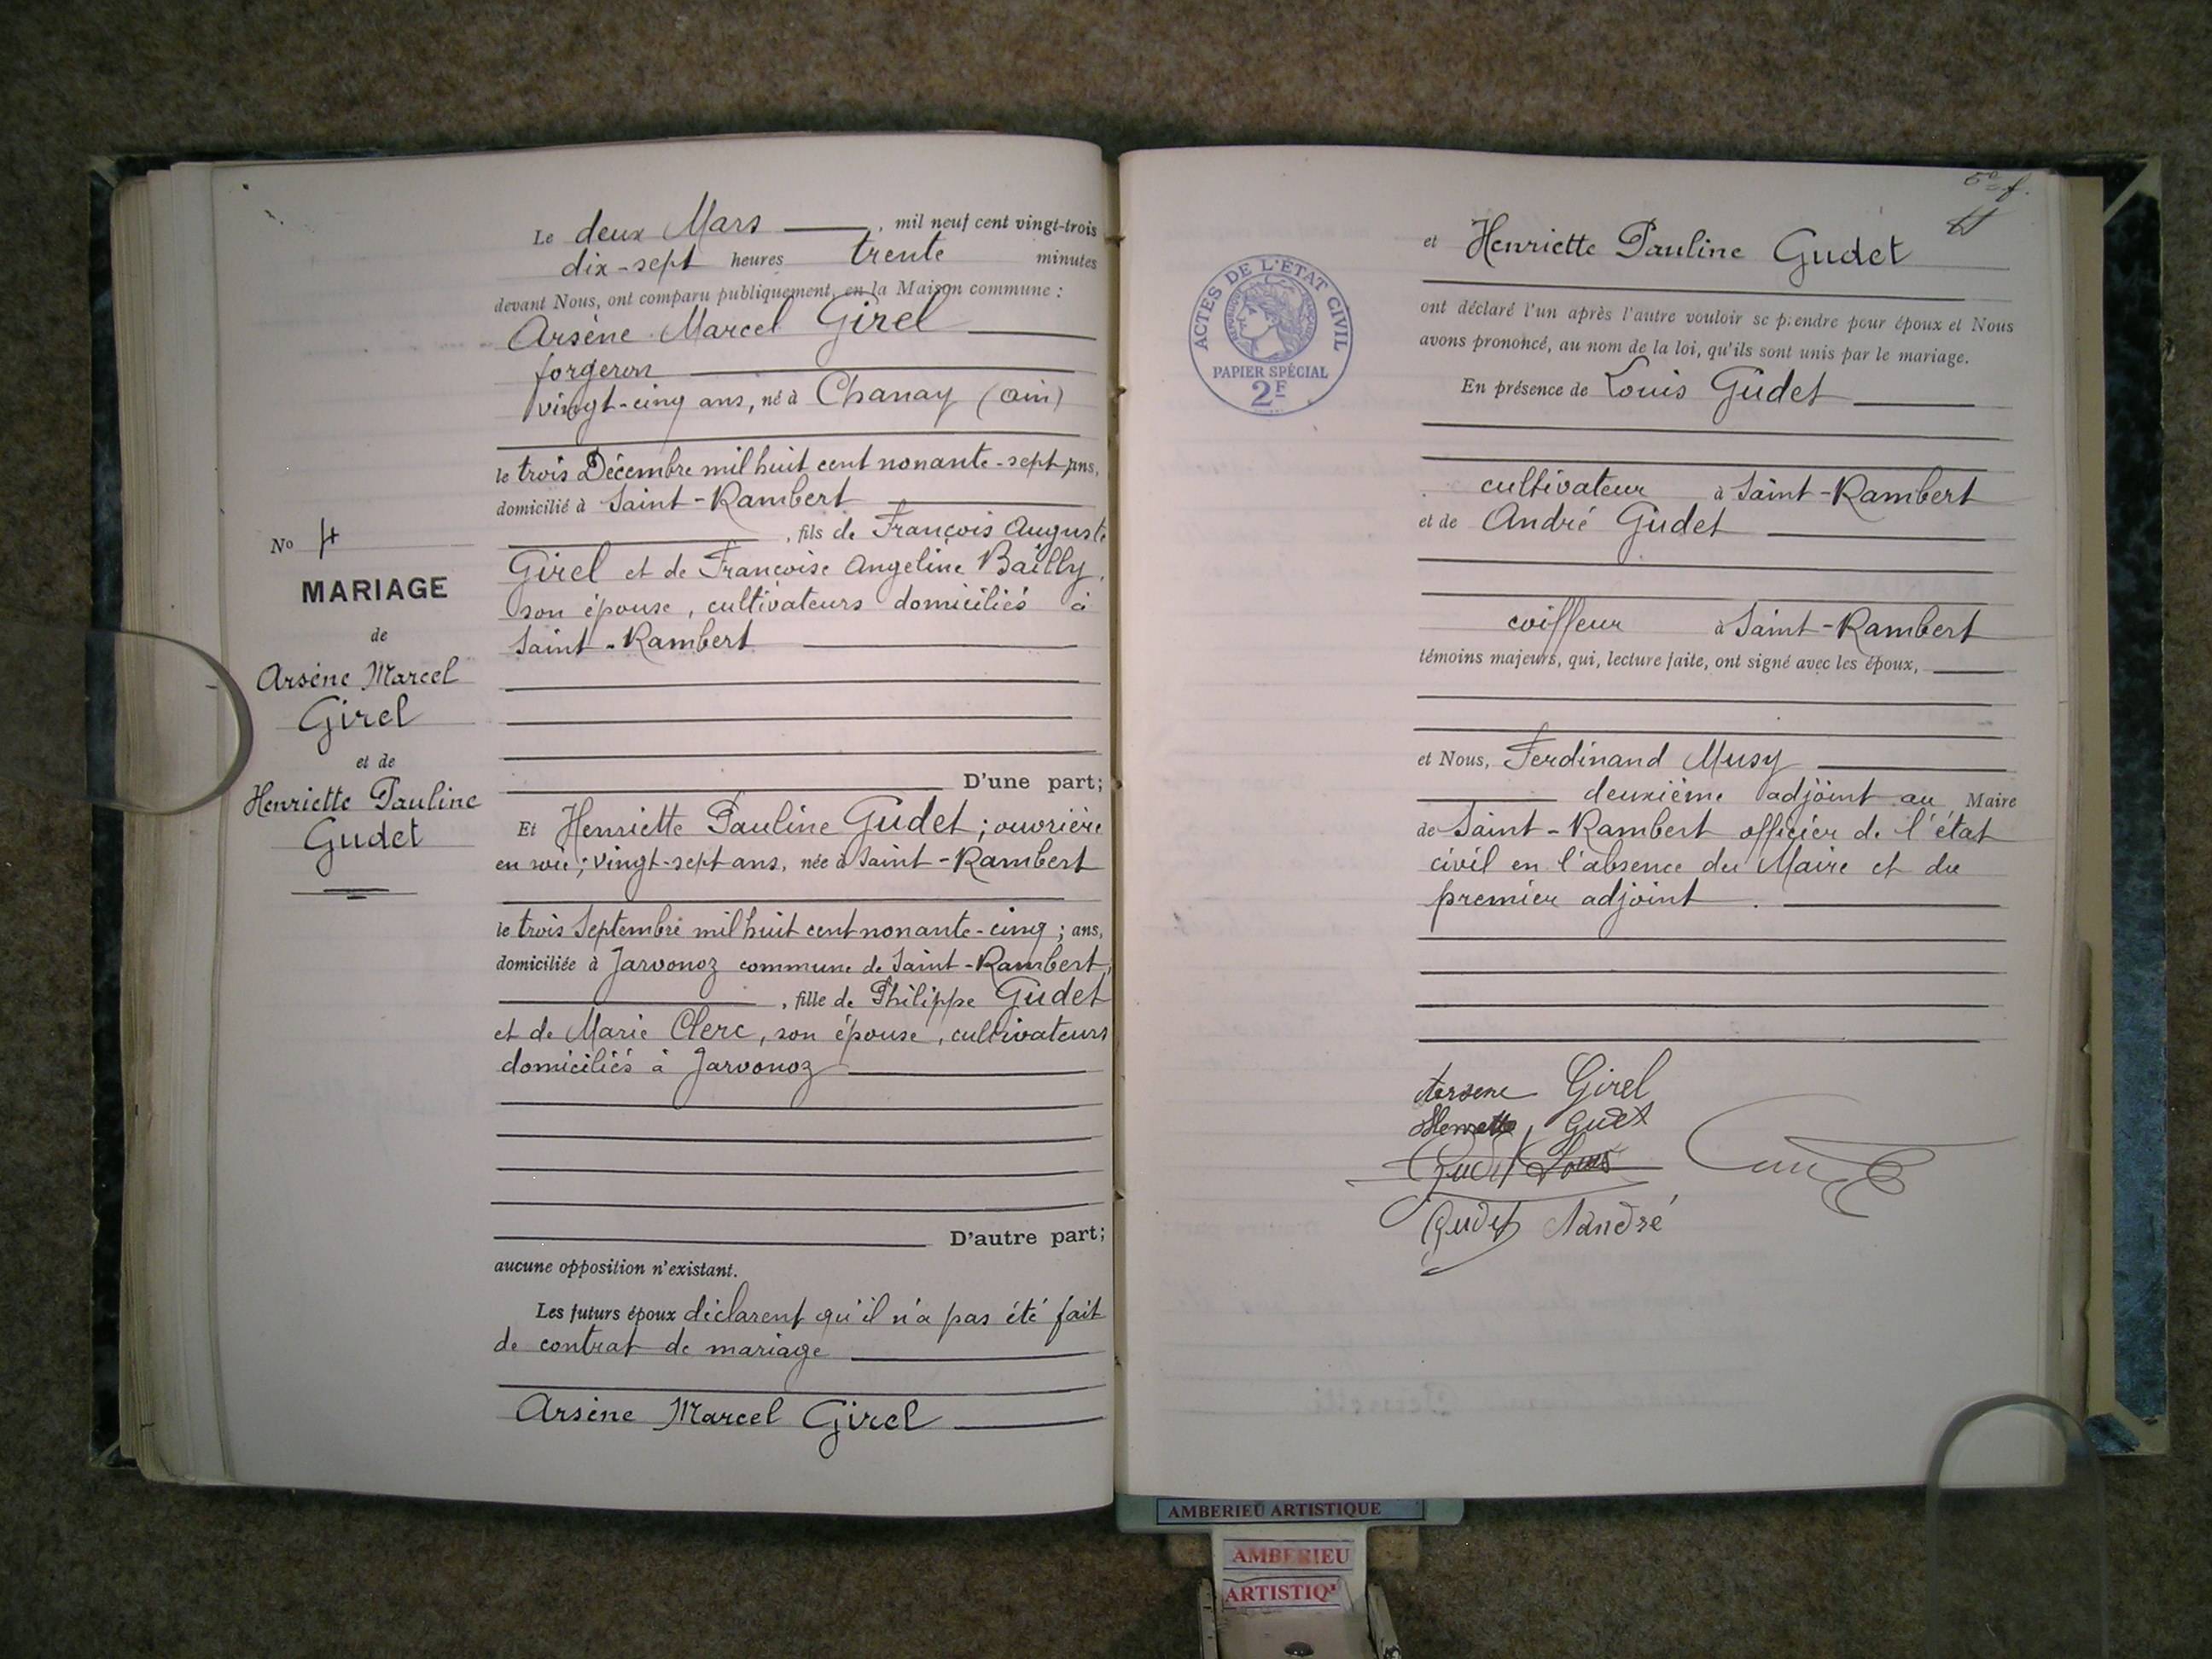 Le deux Mars, mil neuf cent vingt-trois
dix-sept heures trente minutes
devant Nous, ont comparu publiquement, en la Maison commune :
Arsène Marcel Girel
forgeron
vingt-cinq ans, né à Chanay (Ain)
le trois Décembre mil huit cent nonante-sept ans,
domicilié à Saint-Rambert
, fils de François Auguste
Girel et de Françoise Angeline Bailly,
son épouse, cultivateurs domiciliés à
Saint-Rambert
D'une part;
Et Henriette Pauline Gudet; ouvrière
en soie; vingt-sept ans, née à Saint-Rambert
le trois Septembre mil huit cent nonante-cinq; ans,
domiciliée à Jarvonoz commune de Saint-Rambert,
, fille de Philippe Gudet
et de Marie Clerc, son épouse, cultivateurs
domiciliés à Jarvonoz
D'autre part;
aucune opposition n'existant.
Les futurs époux déclarent qu'il n'a pas été fait
de contrat de mariage
Arsène Marcel Girel
No 4
MARIAGE
de
Arsène Marcel
Girel
et de
Henriette Pauline
Gudet
5e f.
ACTES DE L'ÉTAT CIVIL
RÉPUBLIQUE FRANÇAISE
PAPIER SPÉCIAL
2F
et Henriette Pauline Gudet
ont déclaré l'un après l'autre vouloir se prendre pour époux et Nous
avons prononcé, au nom de la loi, qu'ils sont unis par le mariage.
En présence de Louis Gudet
cultivateur à Saint-Rambert
et de André Gudet
coiffeur à Saint-Rambert
témoins majeurs, qui, lecture faite, ont signé avec les époux,
et Nous, Ferdinand Musy
deuxième adjoint au Maire
de Saint-Rambert officier de l'état
civil en l'absence du Maire et du
premier adjoint.
Arsene Girel
Henriette Gudet
Gudet Louis
Gudet André
AMBERIEU ARTISTIQUE
AMBERIEU
ARTISTIQ